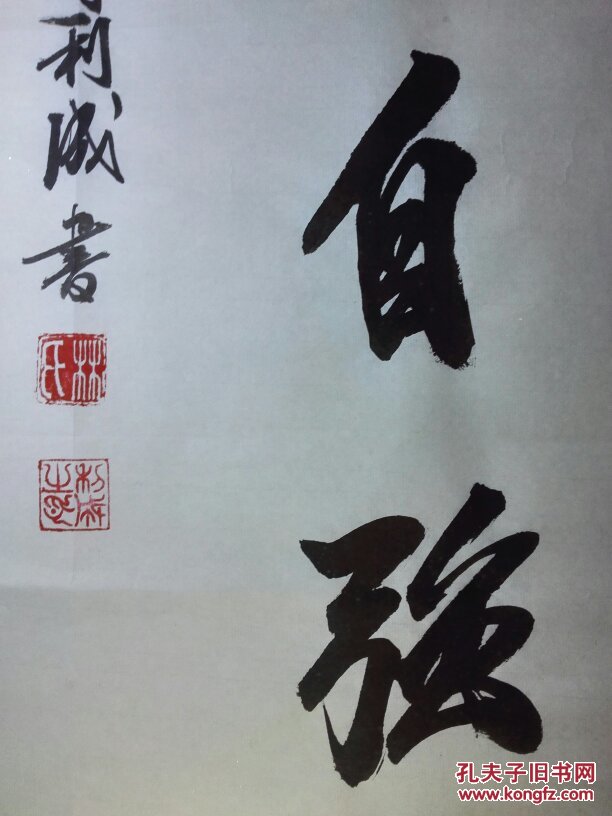 自强
利成书
林氏
孔夫子旧书网
www.kongfz.com